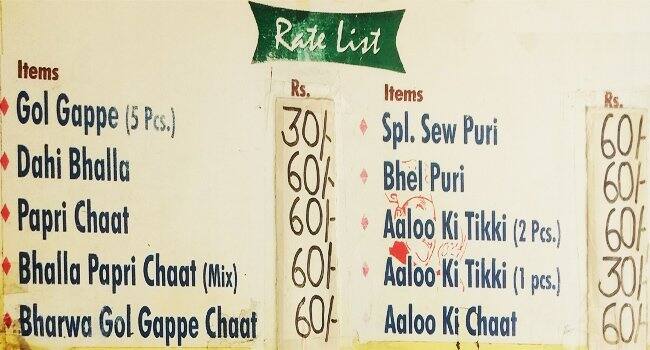 Rate List
Items Rs.
Gol Gappe (5 Pcs.) 30/-
Dahi Bhalla 60/-
Papri Chaat 60/-
Bhalla Papri Chaat (Mix) 60/-
Bharwa Gol Gappe Chaat 60/-
Items Rs.
Spl. Sew Puri 60/-
Bhel Puri 60/-
Aaloo Ki Tikki (2 Pcs.) 60/-
Aaloo Ki Tikki (1 pcs.) 30/-
Aaloo Ki Chaat 60/-